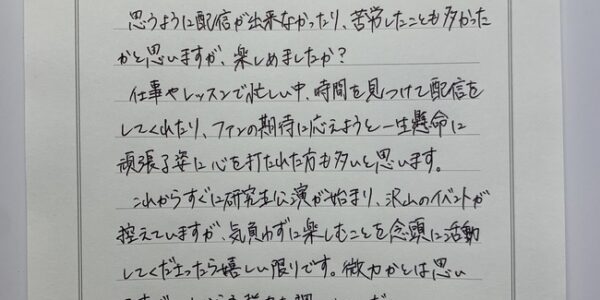 思うように配信が出来なかったり、苦労したことも多かった
かと思いますが、楽しめましたか？
仕事やレッスンで忙しい中、時間を見つけて配信を
してくれたり、ファンの期待に応えようと一生懸命に
頑張る姿に心を打たれた方も多いと思います。
これからすぐに研究生公演が始まり、沢山のイベントが
控えていますが、気負わずに楽しむことを念頭に活動
してくださったら嬉しい限りです。微力かとは思い